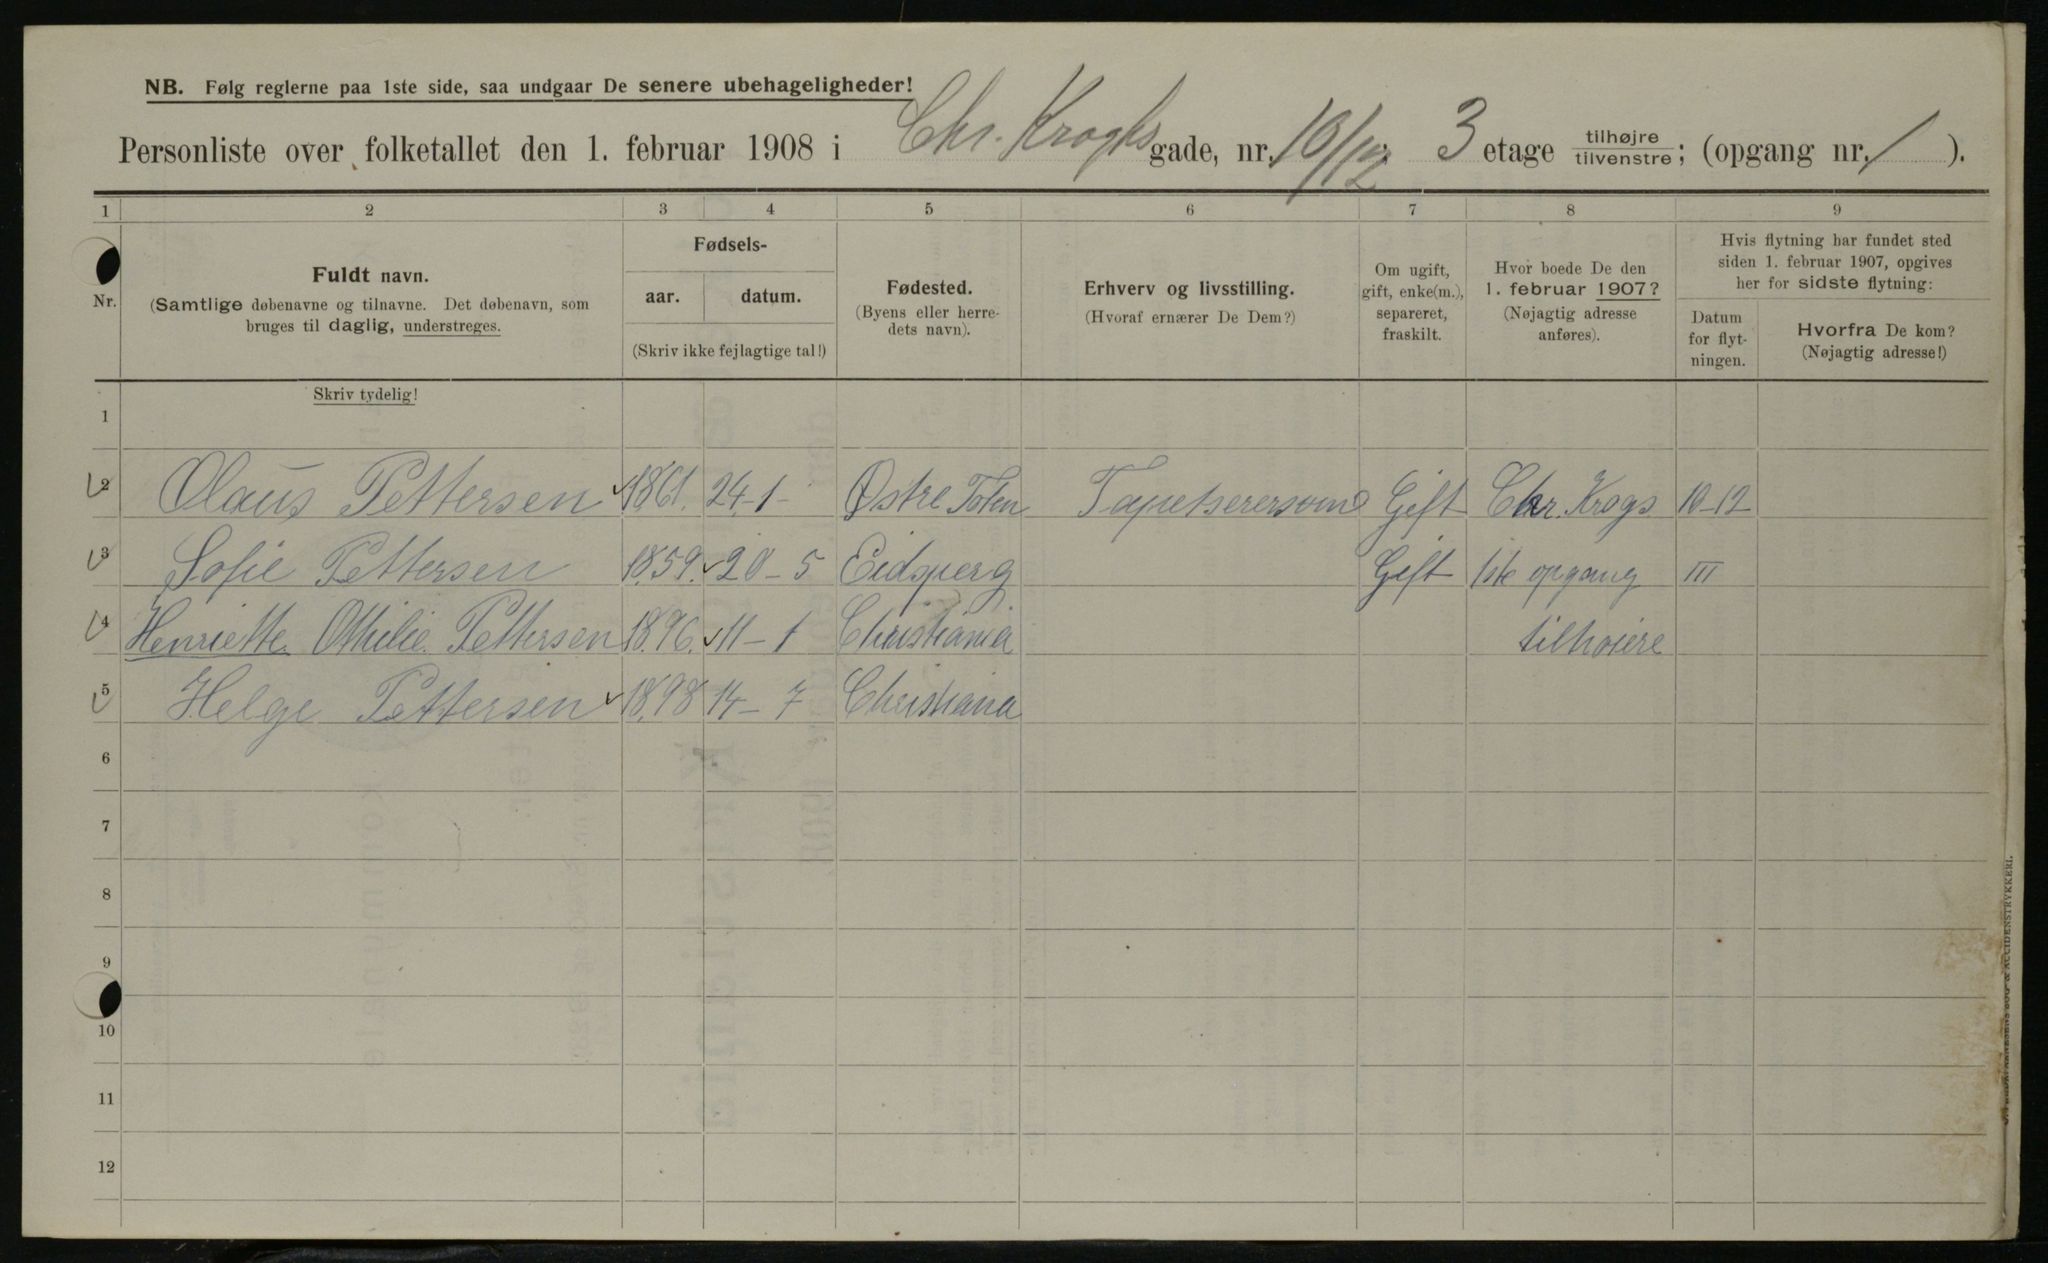 NB. Følg reglerne paa 1ste side, saa undgaar De senere ubehageligheder!
Personliste over folketallet den 1. februar 1908 i Chr. Kroghs gade, nr. 10/12 3 etage tilhøjre/tilvenstre; (opgang nr. 1 ).
1 2 3 4 5 6 7 8 9
Nr.
Fuldt navn.
(Samtlige døbenavne og tilnavne. Det døbenavn, som
bruges til daglig, understreges.
Skriv tydelig!
Fødsels-
aar. datum.
(Skriv ikke fejlagtige tal!)
Fødested.
(Byens eller herre-
dets navn).
Erhverv og livsstilling.
(Hvoraf ernærer De Dem?)
Om ugift,
gift, enke(m.),
separeret,
fraskilt.
Hvor boede De den
1. februar 1907?
(Nøjagtig adresse
anføres).
Hvis flytning har fundet sted
siden 1. februar 1907, opgives
her for sidste flytning:
Datum
for flyt-
ningen.
Hvorfra De kom?
(Nøjagtig adresse!)
1
2 Olaus Pettersen 1861. 24-1- Østre Toten Tapetserersvend Gift Chr. Krogs 10-12
3 Sofie Pettersen 1859. 20-5 Eidsperg Gift 1ste opgang III
4 Henriette Othilie Pettersen 1896. 11-1 Christiania tilhoiere
5 Helge Pettersen 1898 14-7 Christiana
6
7
8
9
10
11
12